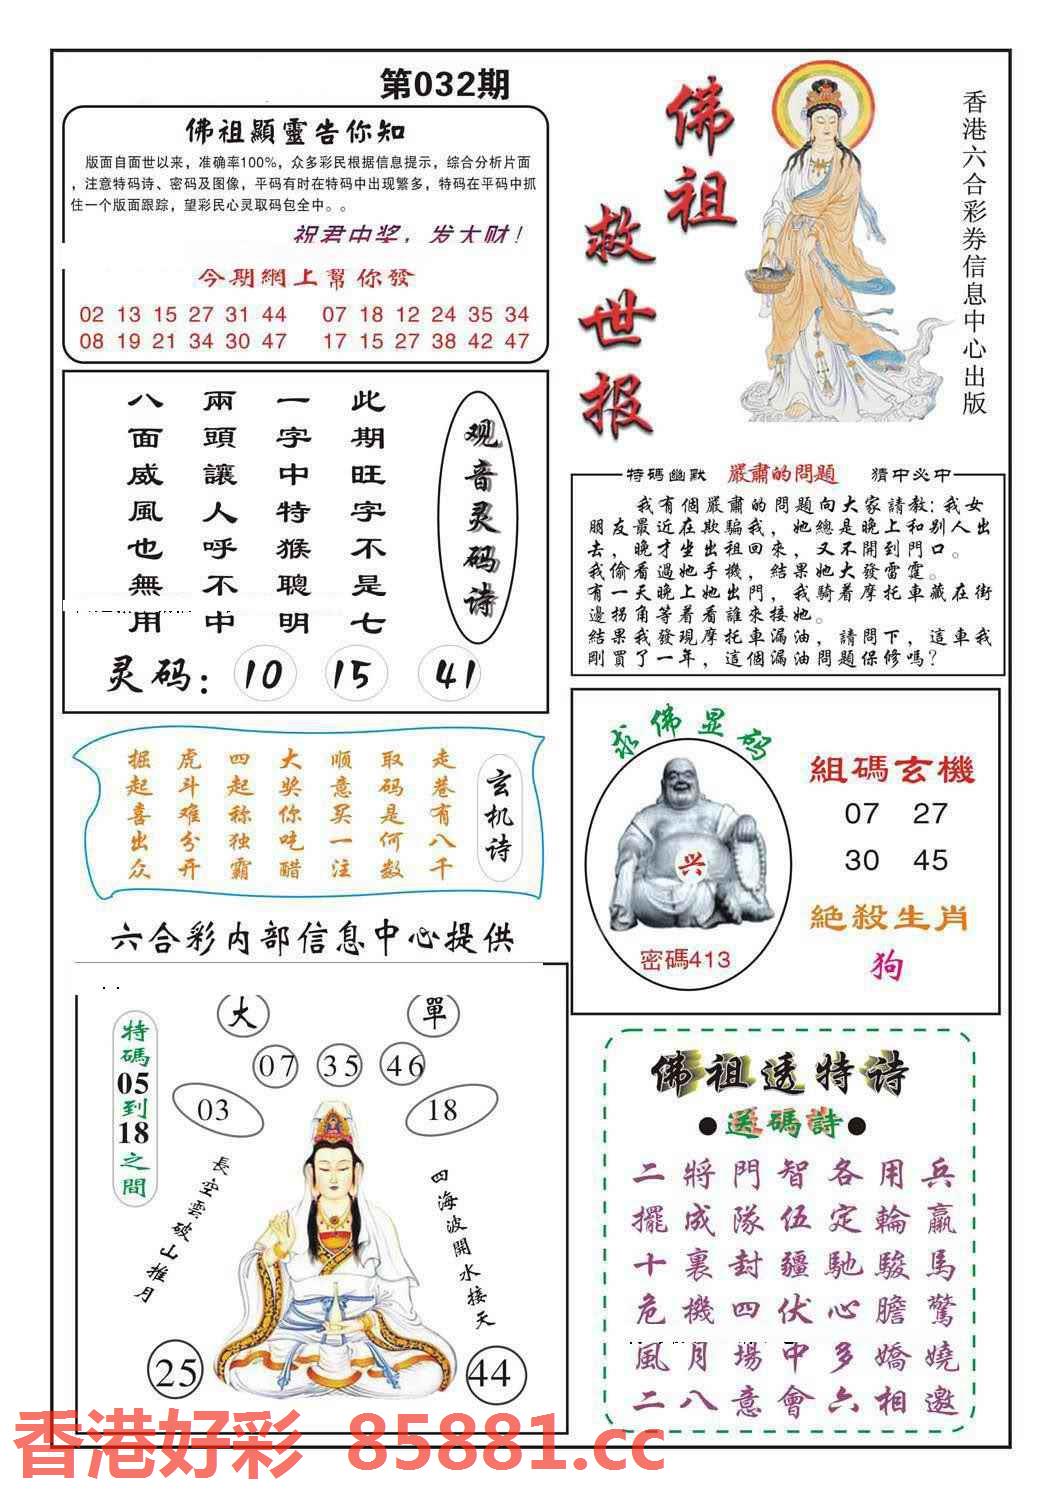 第032期
佛祖顯靈告你知
版面自面世以来，准确率100%，众多彩民根据信息提示，综合分析片面
，注意特码诗、密码及图像，平码有时在特码中出现繁多，特码在平码中抓
住一个版面跟踪，望彩民心灵取码包全中。。
祝君中奖，发大财！
今期網上幫你發
02 13 15 27 31 44 07 18 12 24 35 34
08 19 21 34 30 47 17 15 27 38 42 47
佛祖
救世报
香港六合彩券信息中心出版
观音灵码诗
此期旺字不是七
一字中特猴聰明
兩頭讓人呼不中
八面威風也無用
灵码：10 15 41
特碼幽默 嚴肅的問題 猜中必中
我有個嚴肅的問題向大家請教：我女
朋友最近在欺騙我，她總是晚上和别人出
去，晚才坐出祖回來，又不開到門口。
我偷看過她手機，結果她大發雷霆。
有一天晚上她出門，我騎着摩托車藏在街
邊拐角等着看誰來接她。
結果我發現摩托車漏油，請問下，這車我
剛買了一年，這個漏油問題保修嗎？
玄机诗
走巷有八千
取码是何数
顺意买一注
大奖你吃醋
四起称独霸
虎斗难分开
掘起喜出众
求佛显码
兴
密碼413
組碼玄機
07 27
30 45
絶殺生肖
狗
六合彩内部信息中心提供
特碼05到18之間
大 單
07 35 46
03 18
長空雲破山推月
四海波開水接天
25 44
佛祖透特诗
●送碼詩●
二將門智各用兵
擺成隊伍定輪贏
十裏封疆馳駿馬
危機四伏心膽驚
風月場中多嬌嬈
二八意會六相邀
香港好彩 85881.cc